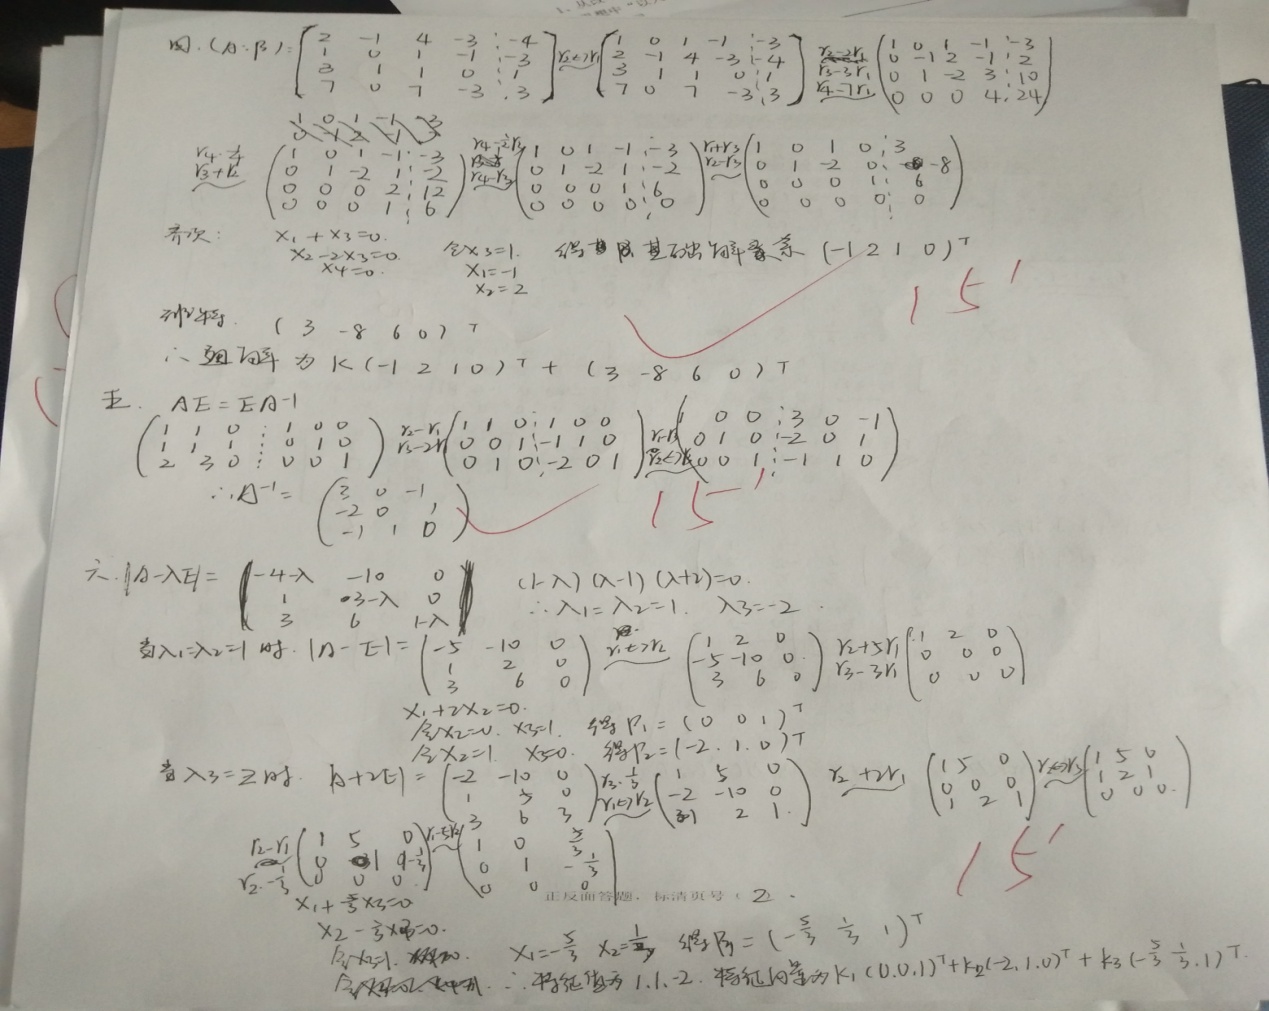 四.(A:β)= [2 -1 4 -3 -4; 1 0 1 -1 -3; 3 1 1 0 1; 7 0 7 -3 3] r2↔r1 [1 0 1 -1 -3; 2 -1 4 -3 -4; 3 1 1 0 1; 7 0 7 -3 3] r2-2r1 r3-3r1 r4-7r1 (1 0 1 -1 -3; 0 -1 2 -1 2; 0 1 -2 3 10; 0 0 0 4 24)
r3+r2 (1 0 1 -1 -3; 0 1 -2 1 -2; 0 0 0 2 12; 0 0 0 1 6) r4-r3 (1 0 1 -1 -3; 0 1 -2 1 -2; 0 0 0 1 6; 0 0 0 0 0) r1+r3 r2-r3 (1 0 1 0 3; 0 1 -2 0 -8; 0 0 0 1 6; 0 0 0 0 0)
齐次: x1+x3=0. 令x3=1. 得 基础解系 (-1 2 1 0)T
x2-2x3=0. x1=-1
x4=0. x2=2
15'
非齐特. (3 -8 6 0)T
∴ 通解为 K(-1 2 1 0)T + (3 -8 6 0)T
五. AE=EA-1
(1 1 0 1 0 0; 1 1 1 0 1 0; 2 3 0 0 0 1) r2-r1 r3-2r1 (1 1 0 1 0 0; 0 0 1 -1 1 0; 0 1 0 -2 0 1) (1 0 0 3 0 -1; 0 1 0 -2 0 1; 0 0 1 -1 1 0)
∴A-1= (3 0 -1; -2 0 1; -1 1 0) 15'
六. |A-λE|= |-4-λ -10 0; 1 3-λ 0; 3 6 1-λ| (1-λ)(λ-1)(λ+2)=0.
∴λ1=λ2=1. λ3=-2.
当λ1=λ2=1时. |A-E|= (-5 -10 0; 1 2 0; 3 6 0) r1↔r2 (1 2 0; -5 -10 0; 3 6 0) r2+5r1 r3-3r1 (1 2 0; 0 0 0; 0 0 0)
x1+2x2=0.
令x2=0. x3=1. 得P1=(0 0 1)T
令x2=1. x3=0. 得P2=(-2.1.0)T
当λ3=2时. |A+2E|= (-2 -10 0; 1 5 0; 3 6 3) r3·1/3 r1↔r2 (1 5 0; -2 -10 0; 1 2 1) r2+2r1 (1 5 0; 0 0 0; 1 2 1) r2↔r3 (1 5 0; 1 2 1; 0 0 0)
r2-r1 r2·-1/3 (1 5 0; 0 1 -1/3; 0 0 0) r1-5r2 (1 0 5/3; 0 1 -1/3; 0 0 0)
15'
正反面答题，标清页号（ 2 ）.
x1+5/3x3=0
x2-1/3x3=0.
令x3=1. x1=-5/3 x2=1/3 得P3=(-5/3 1/3 1)T
∴特征值为1.1.-2. 特征向量为K1(0.0.1)T+K2(-2.1.0)T+K3(-5/3 1/3.1)T.